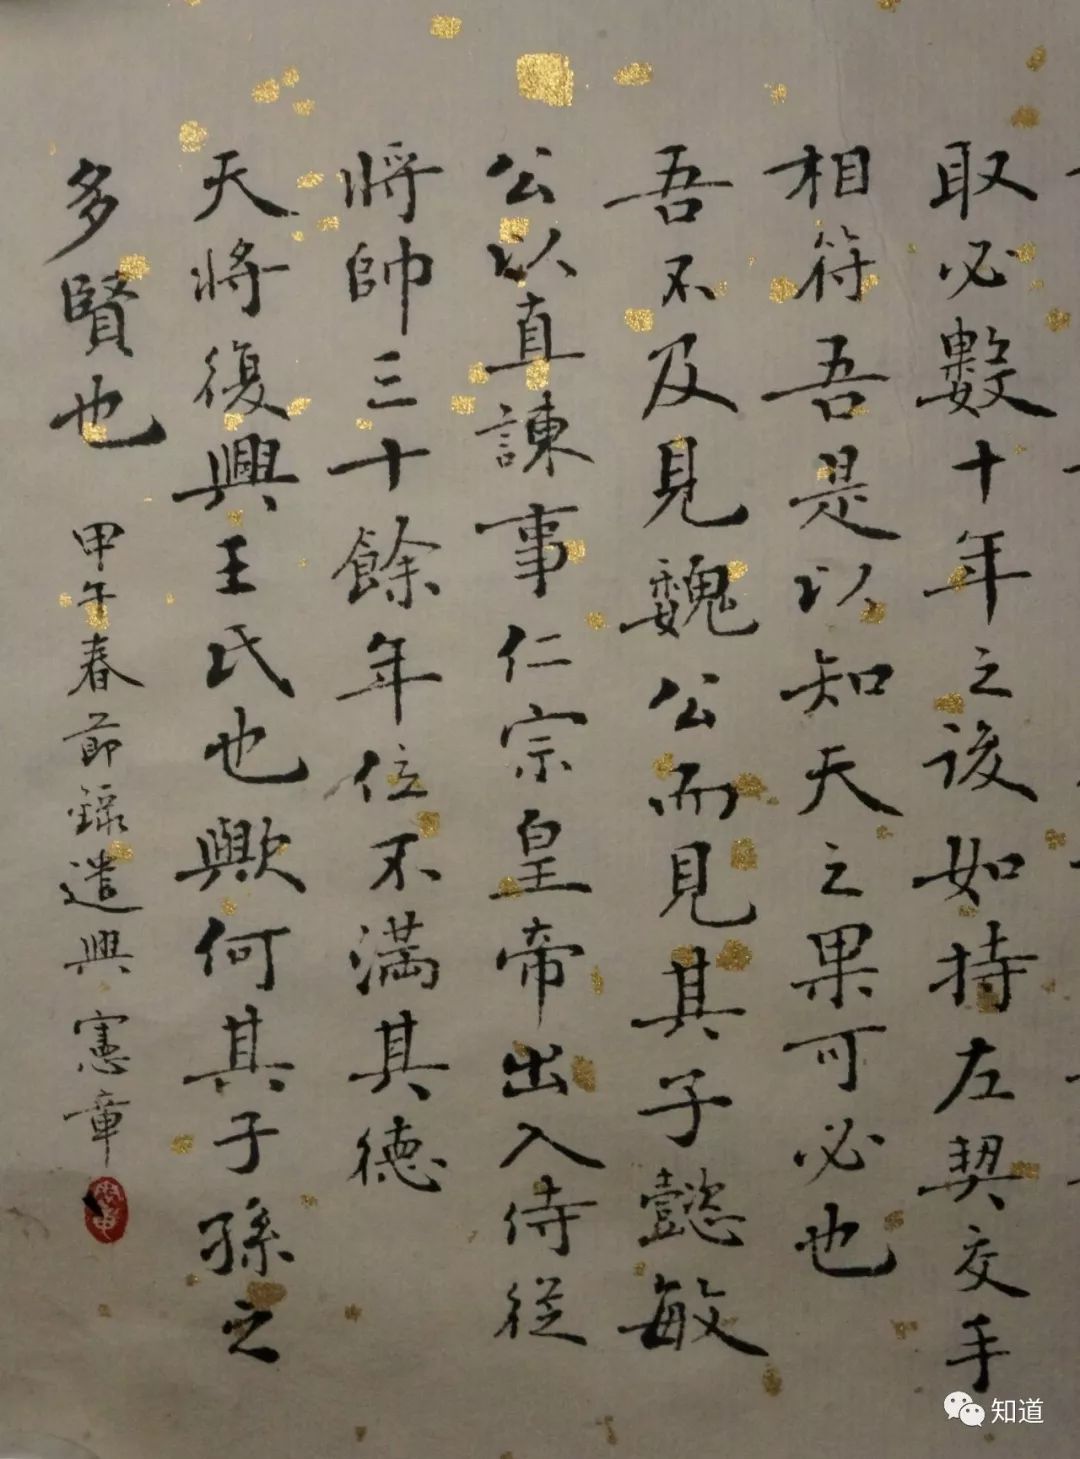 取必數十年之後如持左契交手
相符吾是以知天之果可必也
吾不及見魏公而見其子懿敏
公以直諫事仁宗皇帝出入侍從
將帥三十餘年位不滿其德
天將復興王氏也歟何其子孫之
多賢也
甲午春節錄遣興憲章
知道